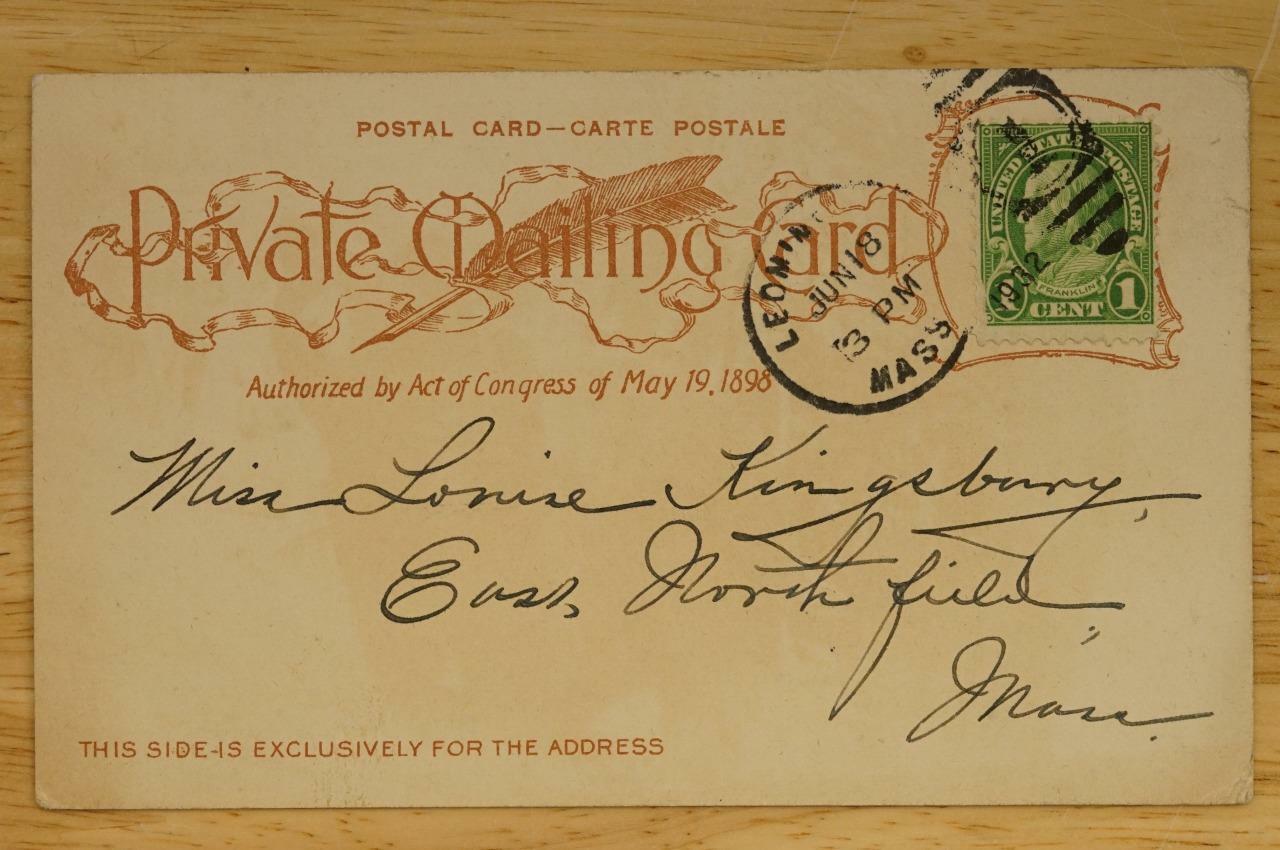 POSTAL CARD—CARTE POSTALE
Private Mailing Card
Authorized by Act of Congress of May 19, 1898
LEOMIN
JUN 18
3 PM
1932
MASS
UNITED STATES POSTAGE
FRANKLIN
1 CENT 1
Miss Louise Kingsbury,
East Northfield
Mass.
THIS SIDE IS EXCLUSIVELY FOR THE ADDRESS